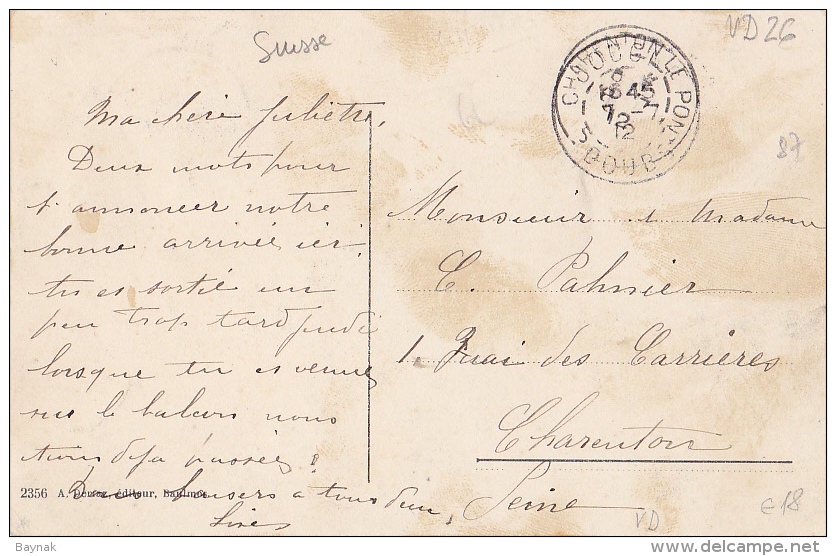 Suisse
VD 26
Ma chère Juliette,
Deux mots pour
t'annoncer notre
bonne arrivée ici.
tu es sortie un
peu trop tard jeudi
lorsque tu es venue
sur le balcon nous
étions déjà passées!
baisers a tous deux,
DOUBS
45
12
87
Monsieur & Madame
C. Palmier
1. Quai des Carrières
Charenton
Seine
2356 A. Deriaz, éditeur, Baulmes
VD
€18
Baynak
delcampe.net